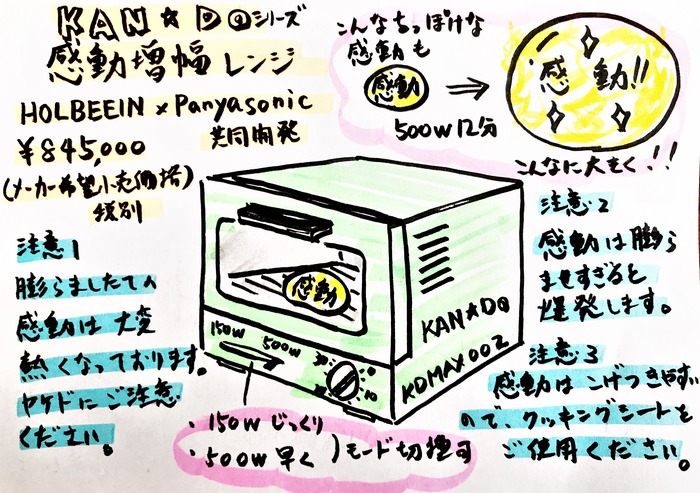 KAN☆DOシリーズ
感動増幅レンジ
HOLBEEIN × Panyasonic
共同開発
¥845,000
(メーカー希望小売価格)
税別
こんなちっぽけな
感動も
感動
500W 12分
感動!!
こんなに大きく!!
注意1
膨らましたての
感動は大変
熱くなっております。
ヤケドにご注意
ください。
注意2
感動は膨ら
ませすぎると
爆発します。
注意3
感動はこげつきやすい
ので、クッキングシートを
ご使用ください。
感動
150W
500W
30
0
10
KAN☆DO
KDMAX002
・150Wじっくり
・500W早く
モード切換可